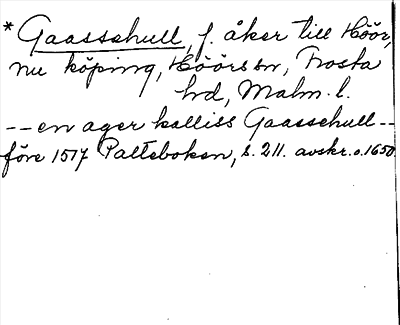 * Gaassehull, f. åker till Höör,
nu köping, Höörs sn, Frosta
hd, Malm. l.
-- en ager kalliss Gaassehull --
före 1517 Palteboken, s. 211. avskr. o. 1650